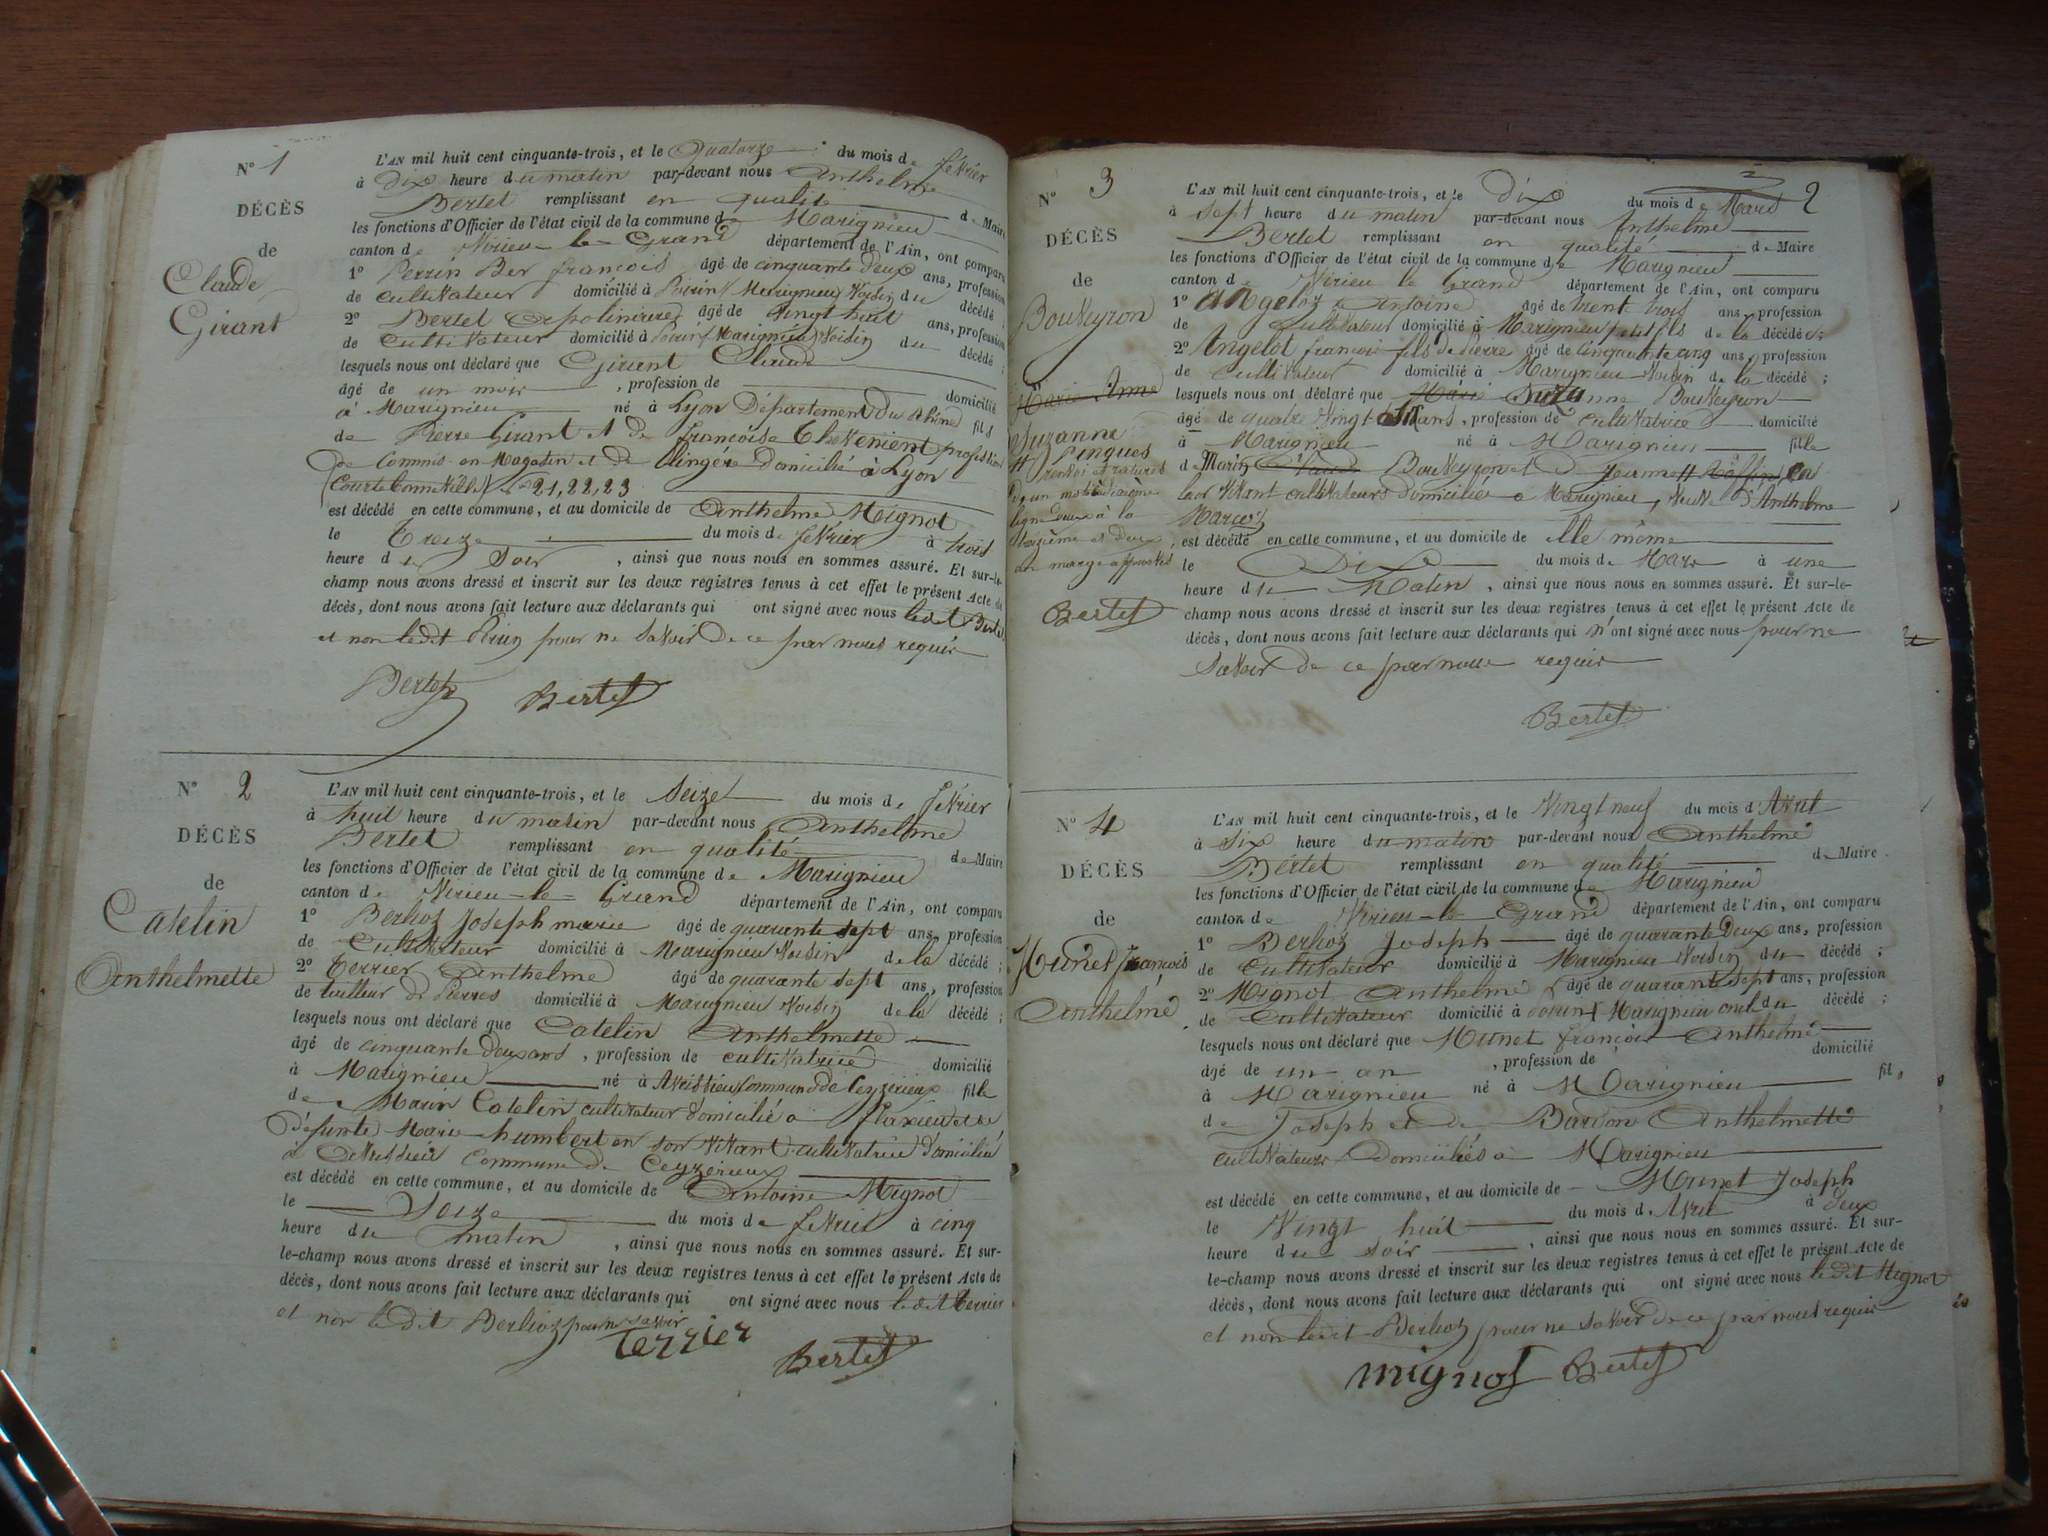 N° 1
DÉCÈS
de
Claude
Girant
L'AN mil huit cent cinquante-trois, et le Quatorze du mois de février
à Dix heure du matin par-devant nous Anthelme
Bertet remplissant en qualité de Maire
les fonctions d'Officier de l'état civil de la commune de Marignieu
canton de Virieu-le-Grand département de l'Ain, ont comparu
1° Perrin Ber françois âgé de cinquante deux ans, profession
de cultivateur domicilié à Poirin Marignieu Voisin du décédé ;
2° Bertet âgé de vingt huit ans, profession
de cultivateur domicilié à Poirin Marignieu Voisin du décédé ;
lesquels nous ont déclaré que Girant Claude
âgé de un mois , profession de domicilié
à Marignieu né à Lyon Département du Rhône fils
de Pierre Girant et de françoise Thevenient profession
de Commis en Magasin et de lingère domicilié à Lyon
21, 22, 23
est décédé en cette commune, et au domicile de Anthelme Mignot
le Treize du mois de février à trois
heure du Soir , ainsi que nous nous en sommes assuré. Et sur-le-
champ nous avons dressé et inscrit sur les deux registres tenus à cet effet le présent Acte de
décès, dont nous avons fait lecture aux déclarants qui ont signé avec nous ledit Bertet
et non ledit Perrin pour ne savoir De ce par nous requis
Bertet Bertet
N° 2
DÉCÈS
de
Catelin
Anthelmette
L'AN mil huit cent cinquante-trois, et le Seize du mois de février
à huit heure du matin par-devant nous Anthelme
Bertet remplissant en qualité de Maire
les fonctions d'Officier de l'état civil de la commune de Marignieu
canton de Virieu-le-Grand département de l'Ain, ont comparu
1° Berlioz Joseph marie âgé de quarante sept ans, profession
de Cultivateur domicilié à Marignieu Voisin de la décédé ;
2° Terrier Anthelme âgé de quarante sept ans, profession
de tailleur de Pierres domicilié à Marignieu Voisin de la décédé ;
lesquels nous ont déclaré que Catelin Anthelmette
âgé de cinquante deux ans , profession de cultivatrice domicilié
à Marignieu né à Avissieu Commune de Ceyzerieux fille
de Marin Catelin cultivateur domicilié à flaxieu et de
défunte Marie humbert en son vivant cultivatrice domicilié
à Avissieu Commune de Ceyzerieux
est décédé en cette commune, et au domicile de Antoine Mignot
le Seize du mois de février à cinq
heure du matin , ainsi que nous nous en sommes assuré. Et sur-
le-champ nous avons dressé et inscrit sur les deux registres tenus à cet effet le présent Acte de
décès, dont nous avons fait lecture aux déclarants qui ont signé avec nous ledit Terrier
et non le dit Berlioz pour ne savoir
Terrier Bertet
2
N° 3
DÉCÈS
de
Bouveyron
Marie Anne
Suzanne
L'AN mil huit cent cinquante-trois, et le Dix du mois de Mars
à Sept heure du matin par-devant nous Anthelme
Bertet remplissant en qualité de Maire
les fonctions d'Officier de l'état civil de la commune de Marignieu
canton de Virieu le Grand département de l'Ain, ont comparu
1° Angeloz Antoine âgé de trente trois ans profession
de Cultivateur domicilié à Marignieu petit fils de la décédée ;
2° Angelot françois fils de Pierre âgé de cinquante cinq ans, profession
de Cultivateur domicilié à Marignieu Voisin de la décédé ;
lesquels nous ont déclaré que Marie Suzanne Bouveyron
âgé de quatre Vingt ans, profession de cultivatrice domicilié
à Marignieu né à Marignieu fille
de Marin Bouveyron et d Jeannette en
leur vivant cultivateurs domiciliés à Marignieu, Veuve d'Anthelme
Marcoz
est décédé en cette commune, et au domicile de elle même
le Dix du mois de Mars à une
heure du Matin , ainsi que nous nous en sommes assuré. Et sur-le-
champ nous avons dressé et inscrit sur les deux registres tenus à cet effet le présent Acte de
décès, dont nous avons fait lecture aux déclarants qui n'ont signé avec nous pour ne
savoir de ce par nous requis
Bertet
Bertet
N° 4
DÉCÈS
de
Munet françois
Anthelme
L'AN mil huit cent cinquante-trois, et le Vingt neuf du mois d'Avril
à Six heure du matin par-devant nous Anthelme
Bertet remplissant en qualité de Maire
les fonctions d'Officier de l'état civil de la commune de Marignieu
canton de Virieu-le-Grand département de l'Ain, ont comparu
1° Berlioz Joseph âgé de quarante Deux ans, profession
de Cultivateur domicilié à Marignieu Voisin du décédé ;
2° Mignot Anthelme âgé de quarante sept ans, profession
de Cultivateur domicilié à Poirin Marignieu oncle du décédé ;
lesquels nous ont déclaré que Munet françois Anthelme
âgé de un an , profession de domicilié
à Marignieu né à Marignieu fils
de Joseph et de Bardon Anthelmette
cultivateurs Domiciliés à Marignieu
est décédé en cette commune, et au domicile de Munet Joseph
le Vingt huit du mois d'Avril à Deux
heure du soir , ainsi que nous nous en sommes assuré. Et sur-
le-champ nous avons dressé et inscrit sur les deux registres tenus à cet effet le présent Acte de
décès, dont nous avons fait lecture aux déclarants qui ont signé avec nous le dit Mignot
et non ledit Berlioz pour ne savoir de ce par nous requis
mignot Bertet